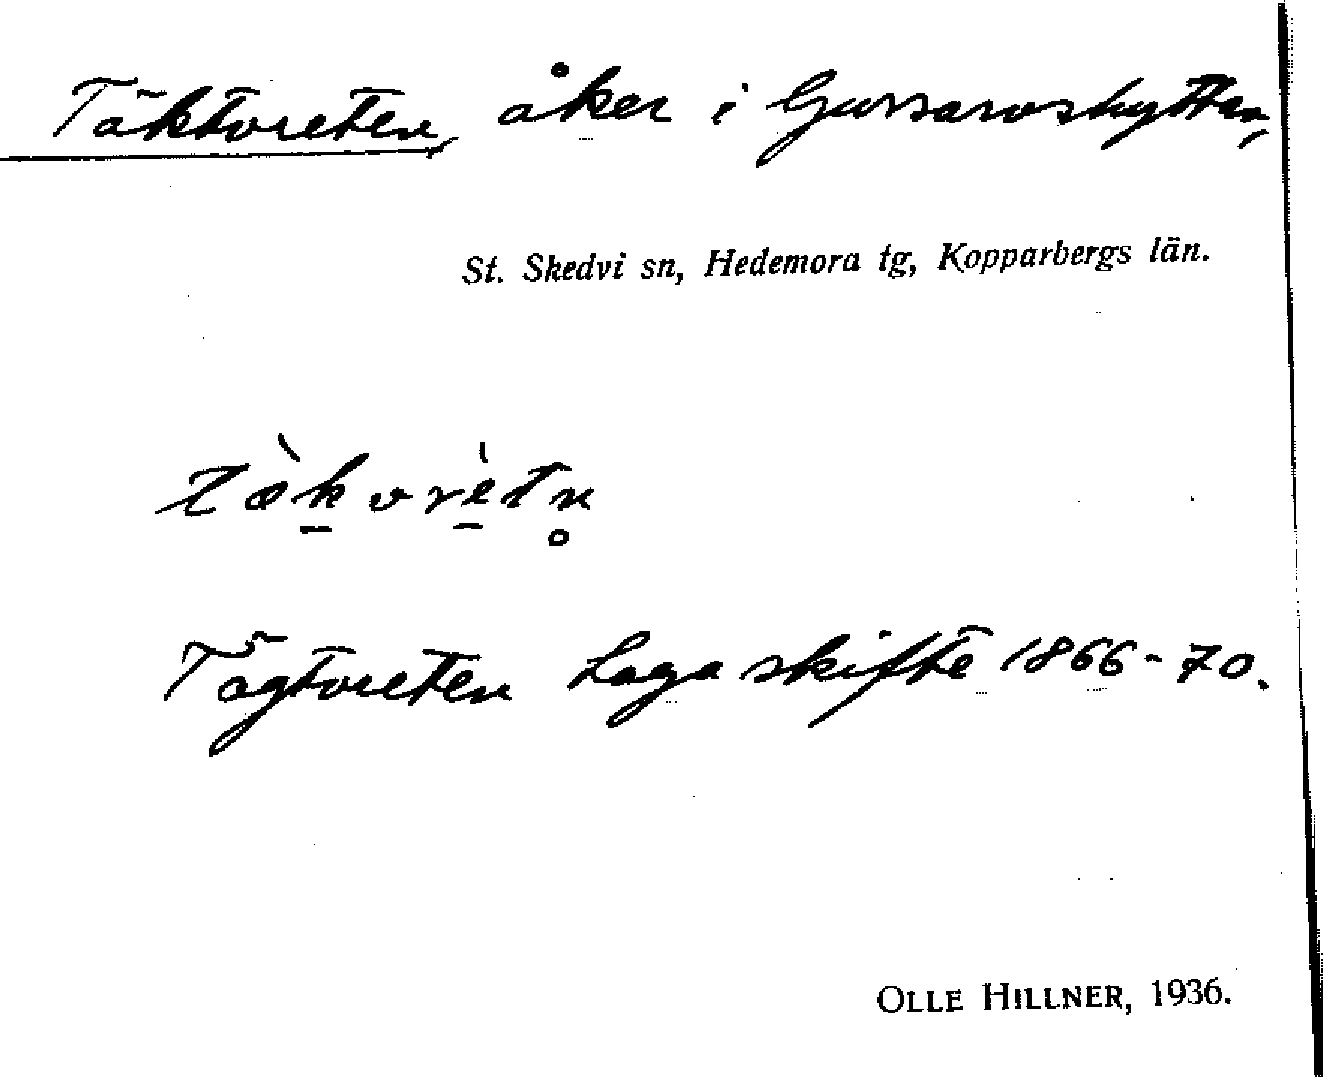 Täktvreten, åker i Gussarvshyttan,
St. Skedvi sn, Hedemora tg, Kopparbergs län.
Tägtvreten Laga skifte 1866-70.
OLLE HILLNER, 1936.